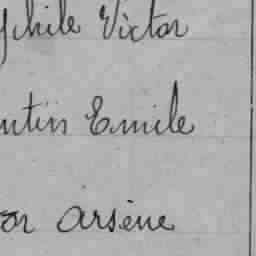 phile Victor
ntin Emile
or Arsène